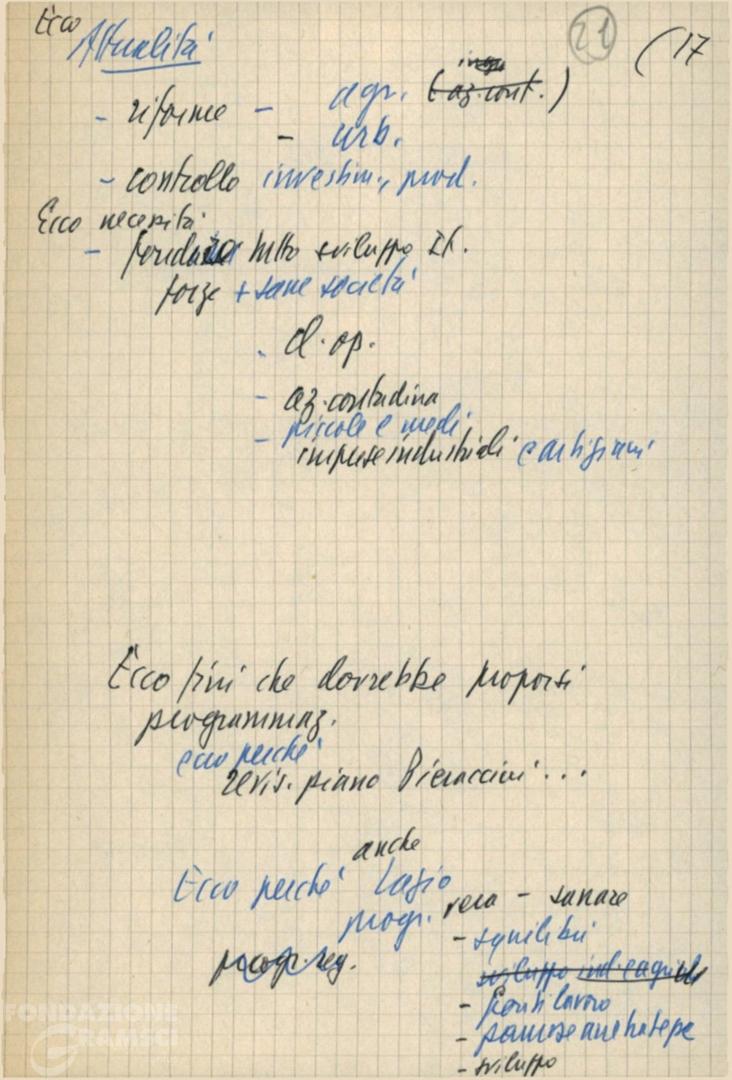 Ecco
Attualità
21
(17
- riforme - agr. (az. cont.)
- urb.
- controllo investim., prod.
Ecco necessità
- fondare tutto sviluppo It.
forze + sane società
- cl. op.
- az. contadina
- piccole e medi
imprese industriali e artigiani
Ecco fini che dovrebbe proporsi
programmaz.
ecco perché
revis. piano Pieraccini...
anche
Ecco perché Lazio
progr. vera - sanare
- squilibri
progr. reg.
sviluppo ind. e agricolo
- fonti lavoro
- 
- sviluppo
FONDAZIONE
GRAMSCI